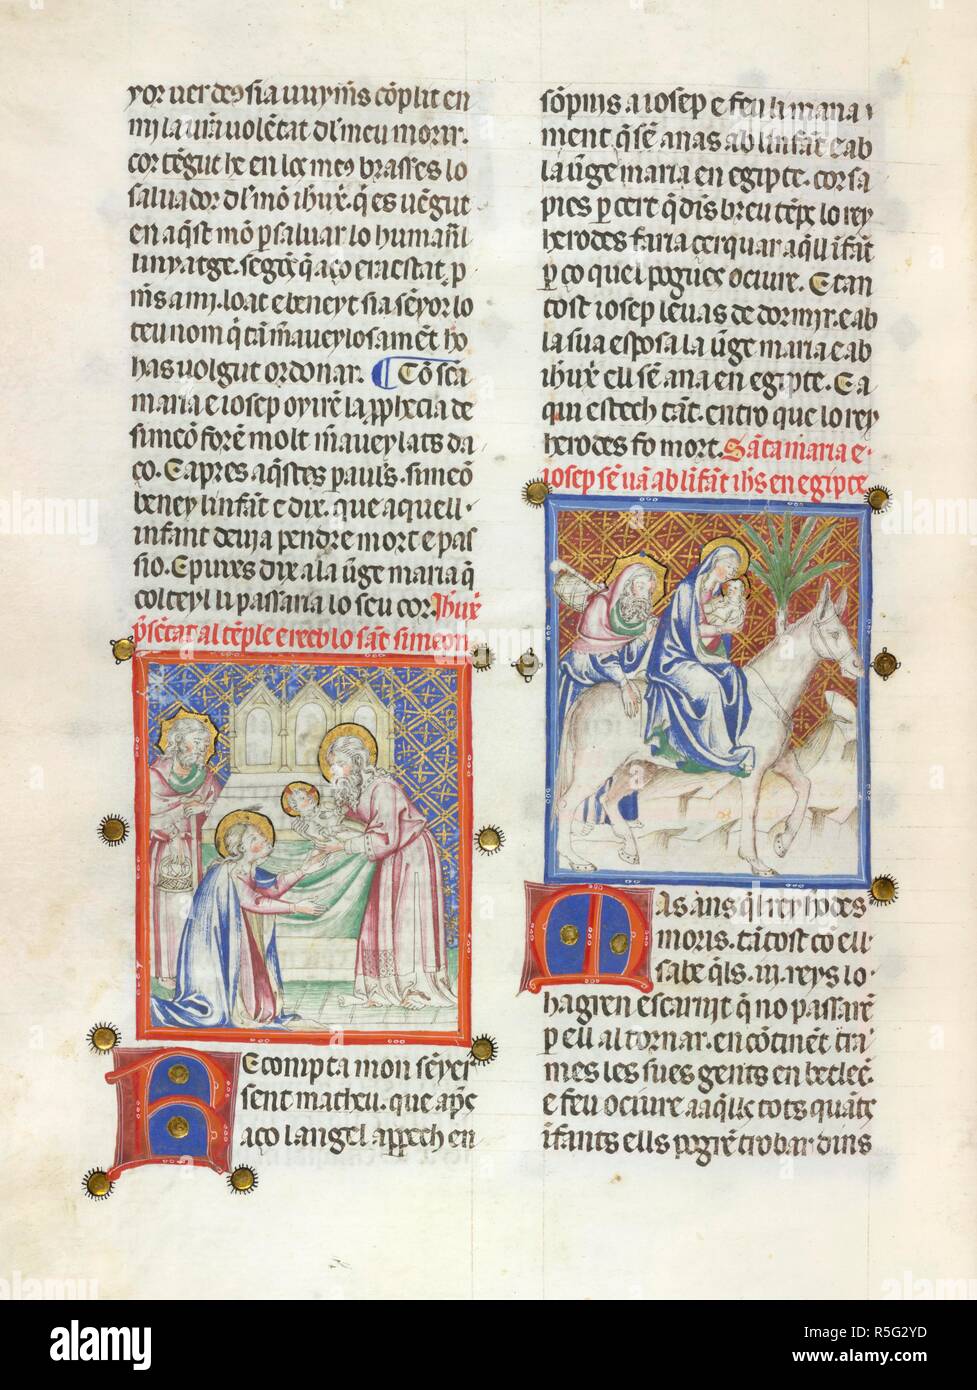 yor uerdeꝯ sia uuy m̄s cōplit en
mi la ur̄a uolētat dl̄ meu morir.
cor tēgut he en los meꝯ brasses lo
saluador dl̄ mō ihūxp̄. q̄ es vēgut
en aq̄st mō ꝑ saluar lo humanl̄
linyatge. segōs q̄ aço era estat ꝑ
m̄s a mi. loat e beneyt sia sēyor lo
teu nom q̄ tā m̄aueylosamēt ho
has uolgut ordonar. ¶ Cō sc̄a
maria e iosep oyirē la ꝓphecia de
simeō forē molt m̄aueylats da
ço. E apres aq̄stes paul̄s. simeō
beney linfāt e dix. que aquell
infant deuia pendre mort e pas
sio. E puxes dix a la ūge maria q̄
colteyl li passaria lo seu cor. Ihūxp̄
p̄sētat al tēple e reeb lo sāt simeon
Recompta mon sēyer
sent matheu. que apˢ
aço langel apꝑech en
sōpnis a iosep e feu li mana
ment q̄ sē anas ab linfāt e ab
la ūge maria en egipte. cor sa
pies ꝑ cert q̄ dīs breu tēps lo rey
herodes faria cerquar aq̄ll īfāt
ꝑ ço quel pogues ociure. E tan
tost iosep leuas de dormir. e ab
la sua esposa la ūge maria e ab
ihūxp̄ ell sē ana en egipte. E a
qui estech tāt. entro que lo rey
herodes fo mort. Sāta maria e
iosep sē uā ab līfāt ihs en egipte
Mas ans q̄l rey hodes
moris. tātost co ell
sabe q̄ls .iii. reys lo
hagren escarnit q̄ no passarē
ꝑ ell al tornar. en cōtinēt tra
mes les sues gents en betleē.
e feu ociure aaq̄lls tots quāts
īfants ells pogrē trobar dins
alamy
Image ID: R5G2YD
www.alamy.com